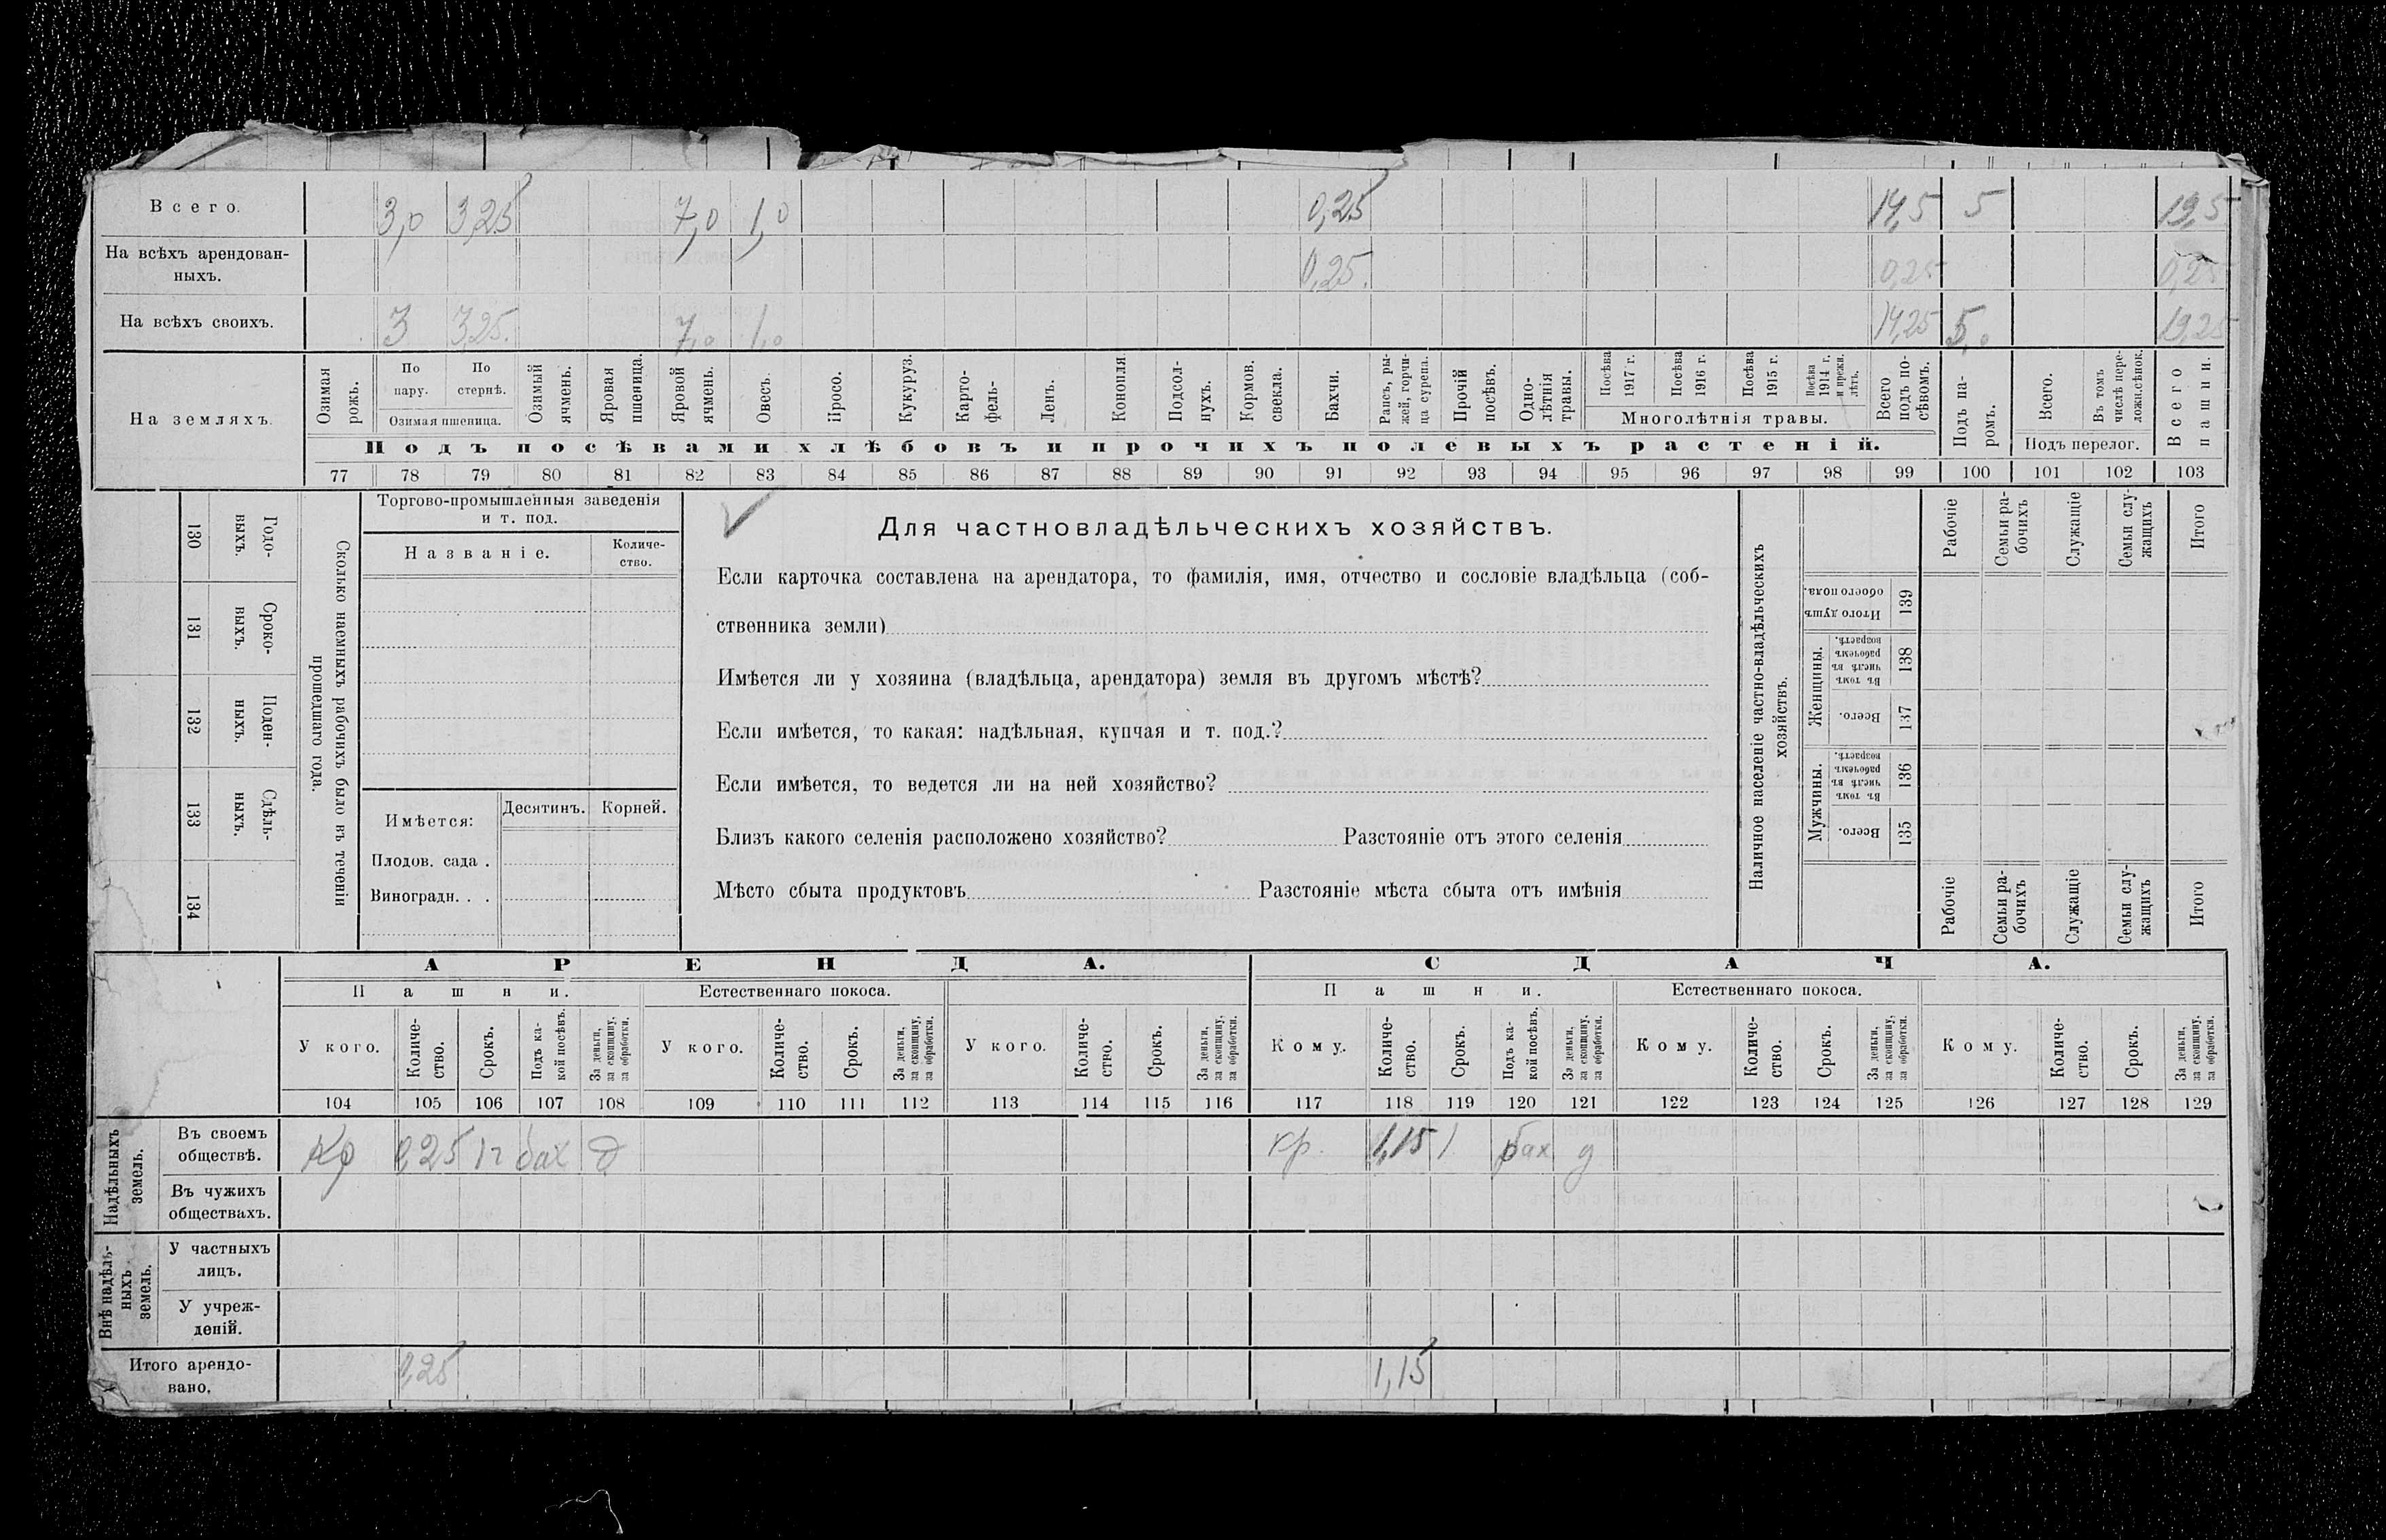 Всего. 3,0 3,25 7,0 1,0 0,25 14,5 5 19,5
На всѣхъ арендован-
ныхъ. 0,25. 0,25 0,25
На всѣхъ своихъ. 3 3,25. 7,0 1,0 14,25 5,0 19,25
На земляхъ.
Озимая рожь.
По пару.
По стернѣ.
Озимая пшеница.
Озимый ячмень.
Яровая пшеница.
Яровой ячмень.
Овесъ.
Просо.
Кукуруз.
Карто-
фель-
Ленъ.
Конопля
Подсол-
нухъ.
Кормов. свекла.
Бахчи.
Рапсъ, ры-
жей, горчи-
ца сурепа.
Прочій посѣвъ.
Одно-
лѣтнія травы.
Посѣва 1917 г.
Посѣва 1916 г.
Посѣва 1915 г.
Посѣва 1914 г. и прежн. лѣтъ.
Многолѣтнія травы.
Всего подъ по-
сѣвомъ.
Подъ посѣвами хлѣбовъ и прочихъ полевыхъ растеній.
Подъ па-
ромъ.
Всего.
Въ томъ числѣ пере-
ложн.сѣнок.
Подъ перелог.
Всего пашни.
77 78 79 80 81 82 83 84 85 86 87 88 89 90 91 92 93 94 95 96 97 98 99 100 101 102 103
130 Годо-
выхъ.
131 Сроко-
выхъ.
132 Поден-
ныхъ.
133 Сдѣль-
ныхъ.
134
Сколько наемныхъ рабочихъ было въ теченіи
прошедшаго года.
Торгово-промышленныя заведенія
и т. под.
Названіе.
Количе-
ство.
Имѣется: Десятинъ. Корней.
Плодов. сада .
Виноградн. . .
Для частновладѣльческихъ хозяйствъ.
Если карточка составлена на арендатора, то фамилія, имя, отчество и сословіе владѣльца (соб-
ственника земли)
Имѣется ли у хозяина (владѣльца, арендатора) земля въ другомъ мѣстѣ?
Если имѣется, то какая: надѣльная, купчая и т. под.?
Если имѣется, то ведется ли на ней хозяйство?
Близъ какого селенія расположено хозяйство? Разстояніе отъ этого селенія
Мѣсто сбыта продуктовъ Разстояніе мѣста сбыта отъ имѣнія
Наличное населеніе частно-владѣльческихъ
хозяйствъ.
Рабочіе
Семьи ра-
бочихъ
Служащіе
Семьи слу-
жащихъ
Итого
Итого душъ обоего пола. 139
Женщины.
Въ томъ числѣ въ рабочемъ возрастѣ. 138
Всего. 137
Мужчины.
Въ томъ числѣ въ рабочемъ возрастѣ. 136
Всего. 135
Рабочіе
Семьи ра-
бочихъ
Служащіе
Семьи слу-
жащихъ
Итого
АРЕНДА. СДАЧА.
Пашни. Естественнаго покоса. Пашни. Естественнаго покоса.
У кого.
Количе-
ство.
Срокъ.
Подъ ка-
кой посѣвъ.
За деньги, за скопщину, за обработки.
У кого.
Количе-
ство.
Срокъ.
За деньги, за скопщину, за обработки.
У кого.
Количе-
ство.
Срокъ.
За деньги, за скопщину, за обработки.
Кому.
Количе-
ство.
Срокъ.
Подъ ка-
кой посѣвъ.
За деньги, за скопщину, за обработки.
Кому.
Количе-
ство.
Срокъ.
За деньги, за скопщину, за обработки.
Кому.
Количе-
ство.
Срокъ.
За деньги, за скопщину, за обработки.
104 105 106 107 108 109 110 111 112 113 114 115 116 117 118 119 120 121 122 123 124 125 126 127 128 129
Надѣльныхъ земель.
Въ своемъ
обществѣ. Кр 0,25 1г бах д кр. 1,15 1 бах д
Въ чужихъ
обществахъ.
Внѣ надѣль-
ныхъ земель.
У частныхъ
лицъ.
У учреж-
деній.
Итого арендо-
вано. 0,25 1,15